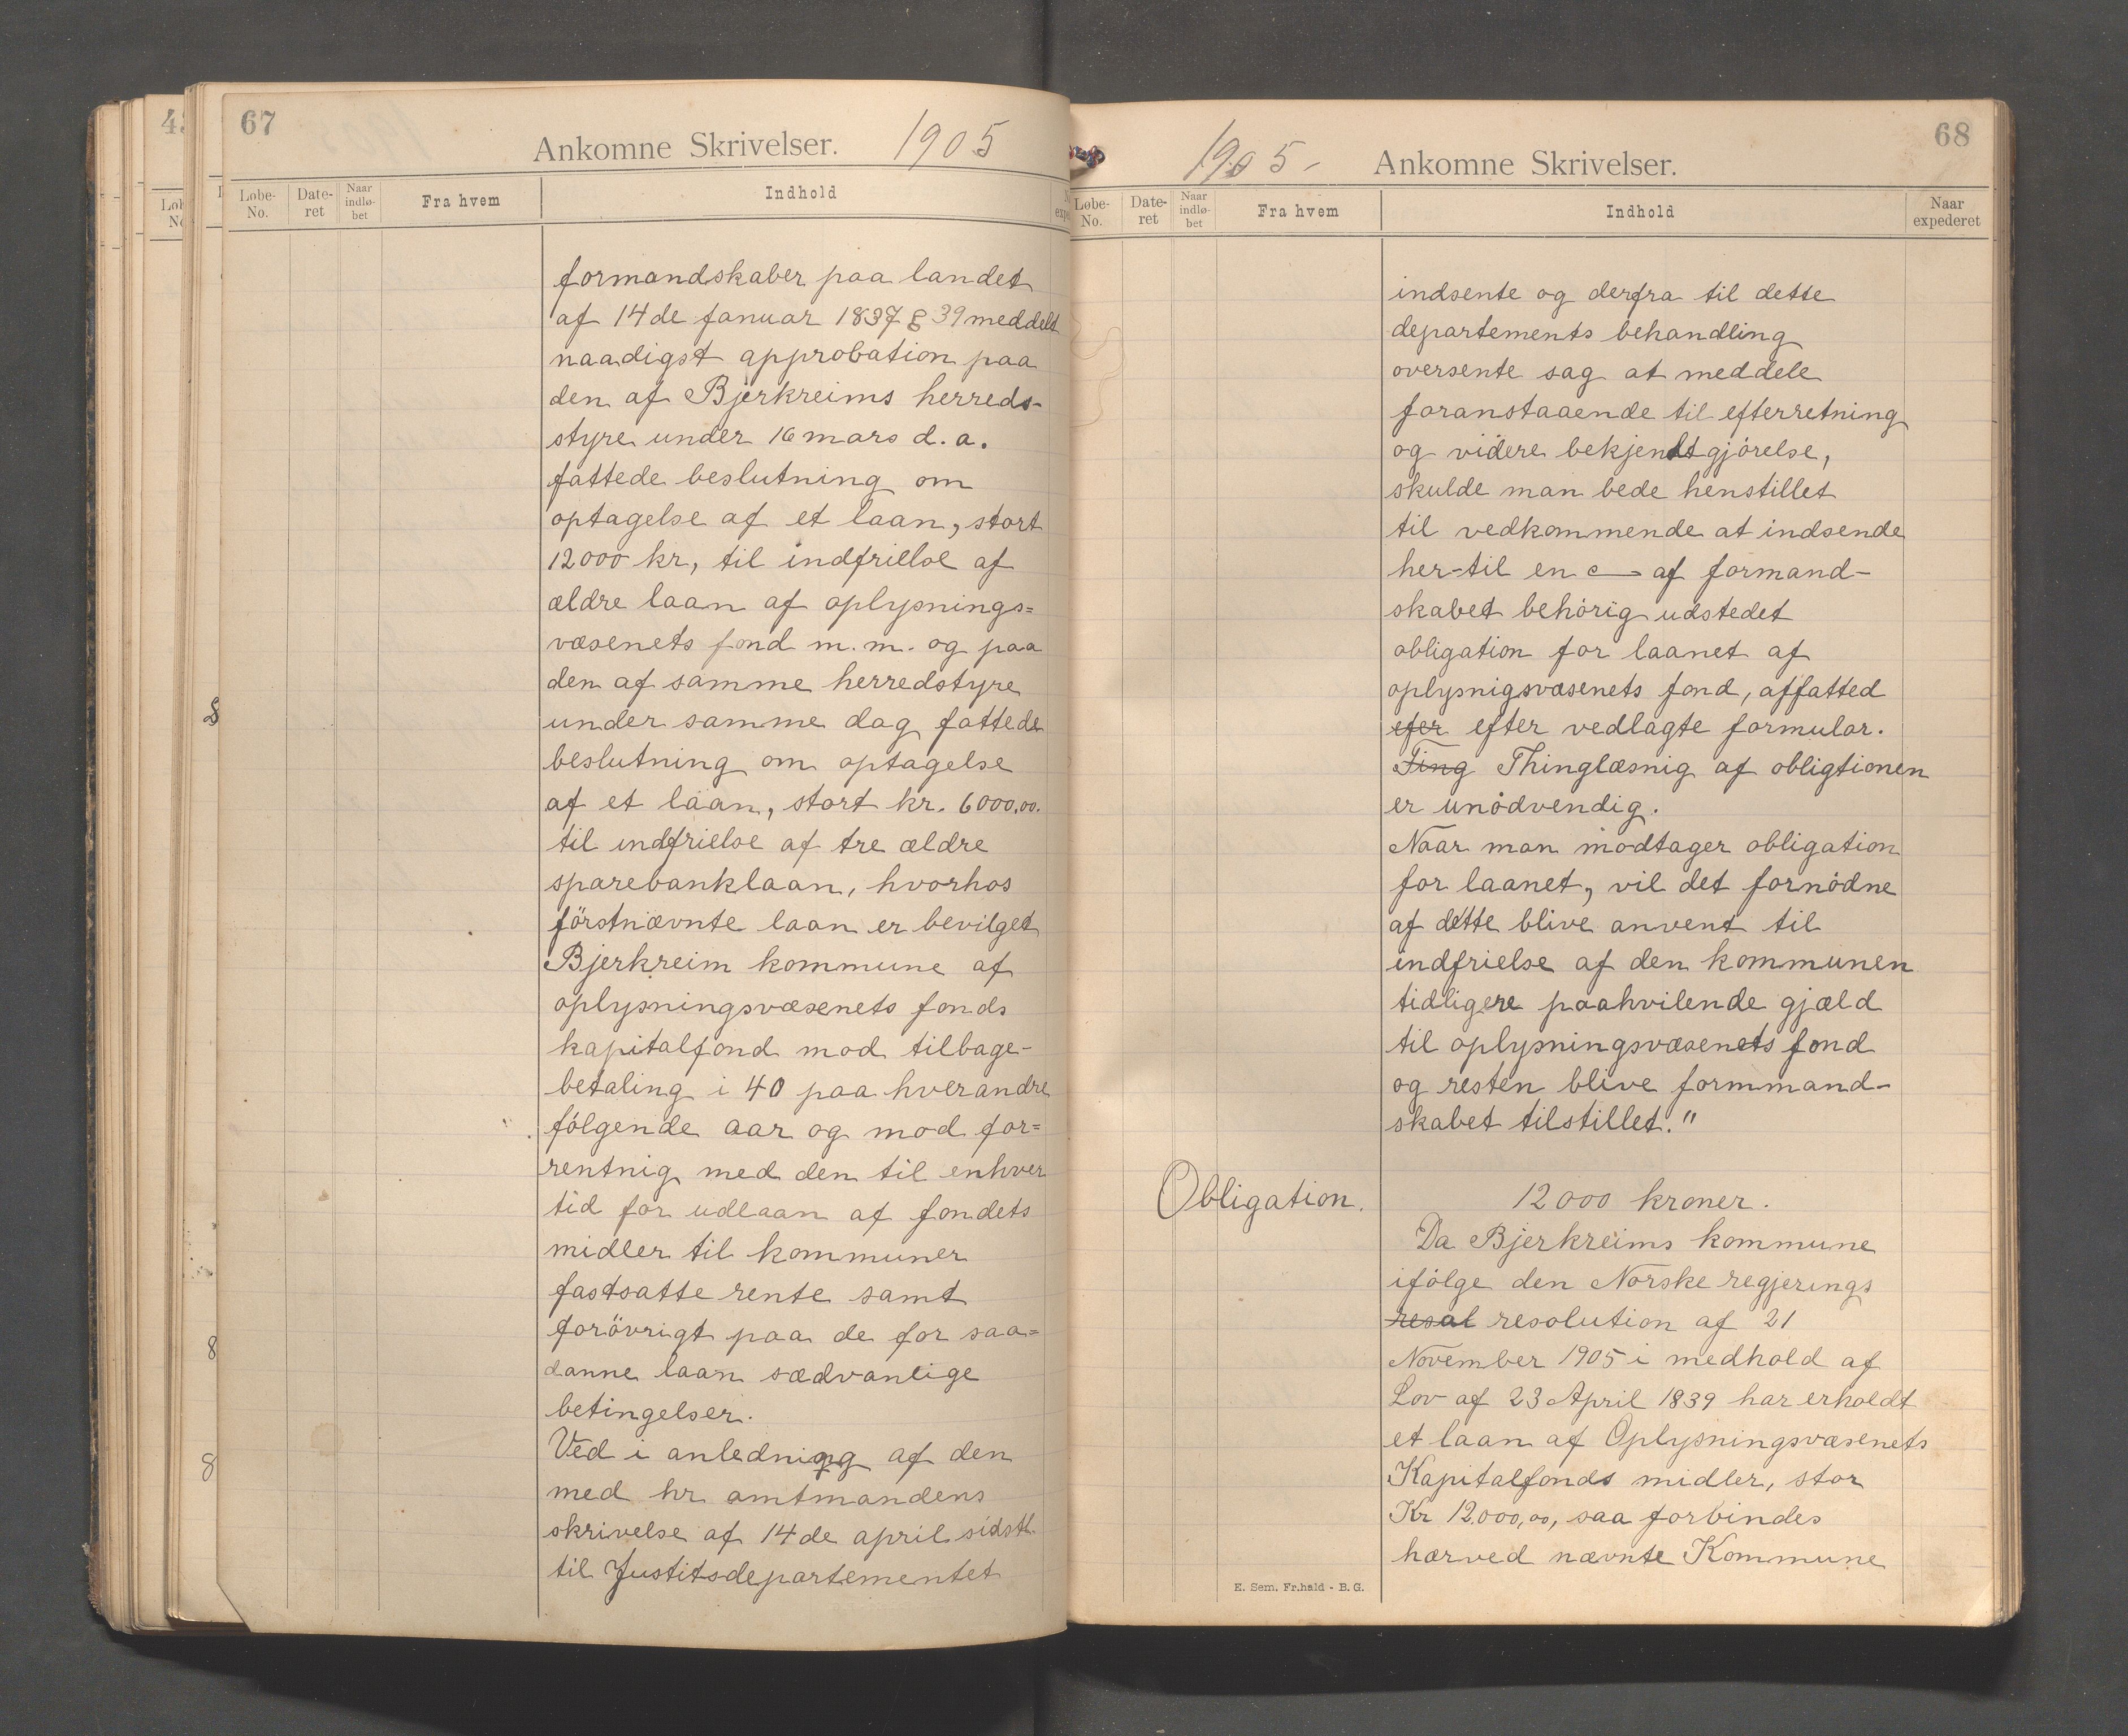 67
Ankomne Skrivelser. 1905
Løbe-No. Date-ret Naar indlø-bet Fra hvem Indhold
formandskaber paa landet
af 14de Januar 1837 § 39 meddelt
naadigst approbation paa
den af Bjerkreims herreds-
styre under 16 mars d. a.
fattede beslutning om
optagelse af et laan, stort
12000 kr, til indfrielse af
ældre laan af oplysnings=
væsenets fond m. m. og paa
den af samme herredstyre
under samme dag fattede
beslutning om optagelse
af et laan, stort kr. 6000,00.
til indfrielse af tre ældre
sparebanklaan, hvorhos
förstnævnte laan er bevilget
Bjerkreim kommune af
oplysningsvæsenets fonds
kapitalfond mod tilbage-
betaling i 40 paa hverandre
fölgende aar og mod for=
rentnig med den til enhver
tid for udlaan af fondets
midler til kommuner
fastsatte rente samt
forövrigt paa de for saa=
danne laan sædvanlige
betingelser.
Ved i anledning af den
med hr amtmandens
skrivelse af 14de april sidstl.
til Justitsdepartementet
68
1905- Ankomne Skrivelser.
Løbe-No. Date-ret Naar indlø-bet Fra hvem Indhold Naar expederet
indsente og derfra til dette
departements behandling
oversente sag at meddele
foranstaaende til efterretning
og videre bekjendtgjörelse,
skulde man bede henstillet
til vedkommende at indsende
her-til en af formand-
skabet behörig udstedet
obligation for laanet af
oplysnigsvæsenets fond, affatted
efer efter vedlagte formular.
Ting Thinglæsnig af obligtionen
er unödvendig.
Naar man modtager obligation
for laanet, vil det fornödne
af dette blive anvent til
indfrielse af den kommunen
tidligere paahvilende gjæld
til oplysningsvæsenets fond
og resten blive formmand-
skabet tilstillet."
Obligation. 12000 kroner.
Da Bjerkreims kommune
ifölge den Norske regjerings
resol resolution af 21
November 1905 i medhold af
Lov af 23 April 1839 har erholdt
et laan af Oplysningsvæsenets
Kapitalfonds midler, stor
Kr 12.000,00, saa forbindes
hærved nævnte Kommune
E. Sem. Fr.hald - B. G.